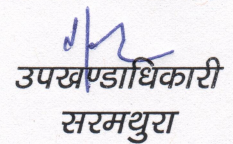 उपखण्डाधिकारी
सरमथुरा